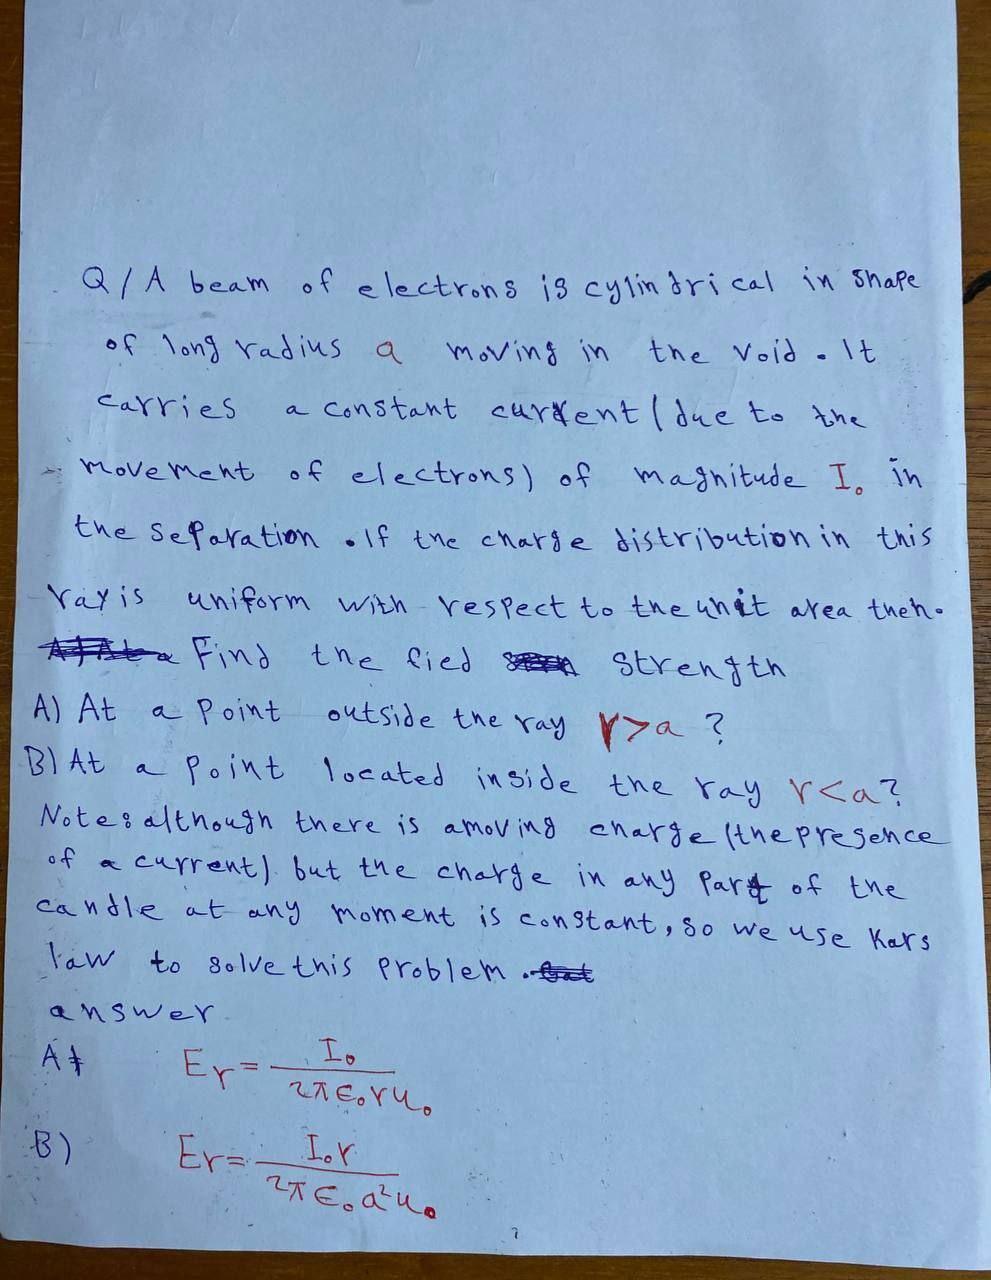 Q/A beam of electrons is cylindrical in shape
of long radius a moving in the void. It
carries a constant current (due to the
movement of electrons) of magnitude I₀ in
the separation. If the charge distribution in this
ray is uniform with respect to the unit area then.
Find the fied strength
A) At a point outside the ray r>a ?
B) At a point located inside the ray r<a?
Note: although there is a moving charge (the presence
of a current) but the charge in any part of the
candle at any moment is constant, so we use Kars
law to solve this problem.
answer
A) Er = I₀ / 2π ϵ₀ r u₀
B) Er = I₀ r / 2π ϵ₀ a² u₀